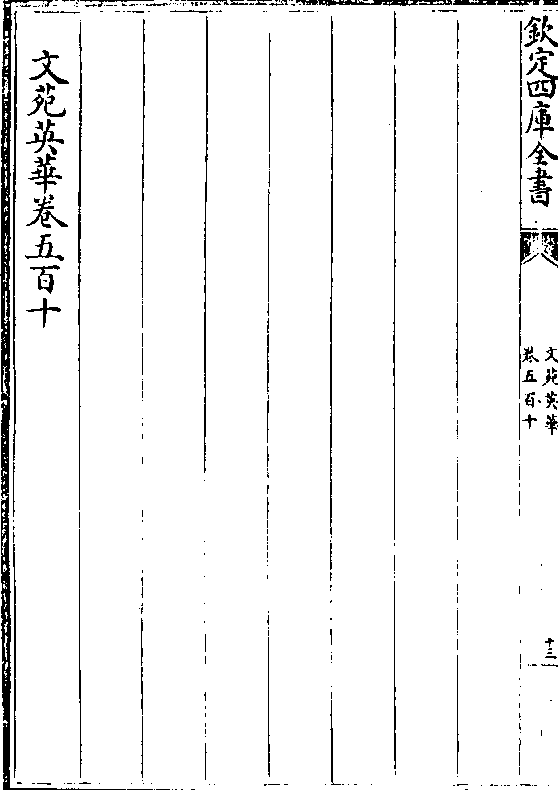 欽定四庫全書
文苑英華
卷五百十
十三
文苑英華卷五百十